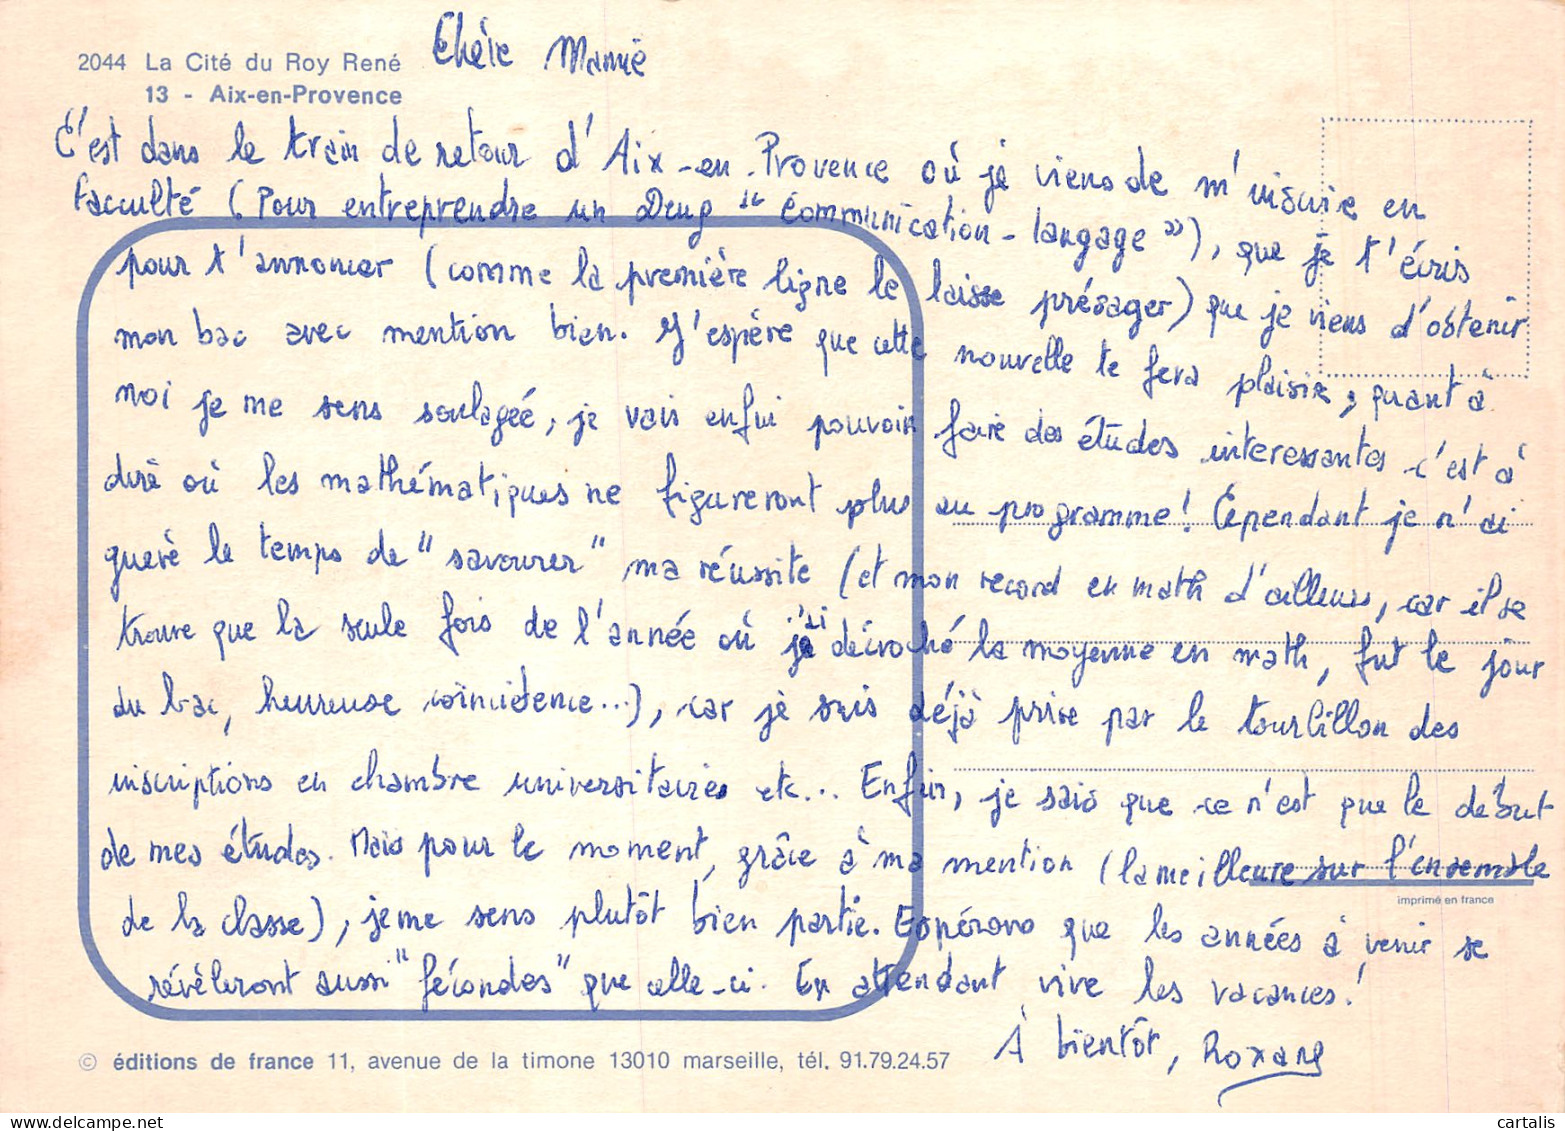 2044 La Cité du Roy René
13 - Aix-en-Provence
Chère Mamie
C'est dans le train de retour d'Aix-en-Provence où je viens de m'inscrire en
faculté (Pour entreprendre un Deug "Communication-langage"), que je t'écris
pour t'annoncer (comme la première ligne le laisse présager) que je viens d'obtenir
mon bac avec mention bien. J'espère que cette nouvelle te fera plaisir, quant à
moi je me sens soulagée, je vais enfin pouvoir faire des études interessantes c'est à
dire où les mathématiques ne figureront plus au programme! Cependant je n'ai
guère le temps de "savourer" ma réussite (et mon record en math d'ailleurs, car il se
trouve que la seule fois de l'année où j'ai décroché la moyenne en math, fut le jour
du bac, heureuse coïncidence...), car je suis déjà prise par le tourbillon des
inscriptions en chambre universitaires etc... Enfin, je sais que ce n'est que le début
de mes études. Mais pour le moment, grâce à ma mention (la meilleure sur l'ensemble
de la classe), je me sens plutôt bien partie. Espérons que les années à venir se
révèleront aussi "fécondes" que celle-ci. En attendant vive les vacances!
À bientôt, Roxane
imprimé en france
© éditions de france 11, avenue de la timone 13010 marseille, tél. 91.79.24.57
www.cartalis.com